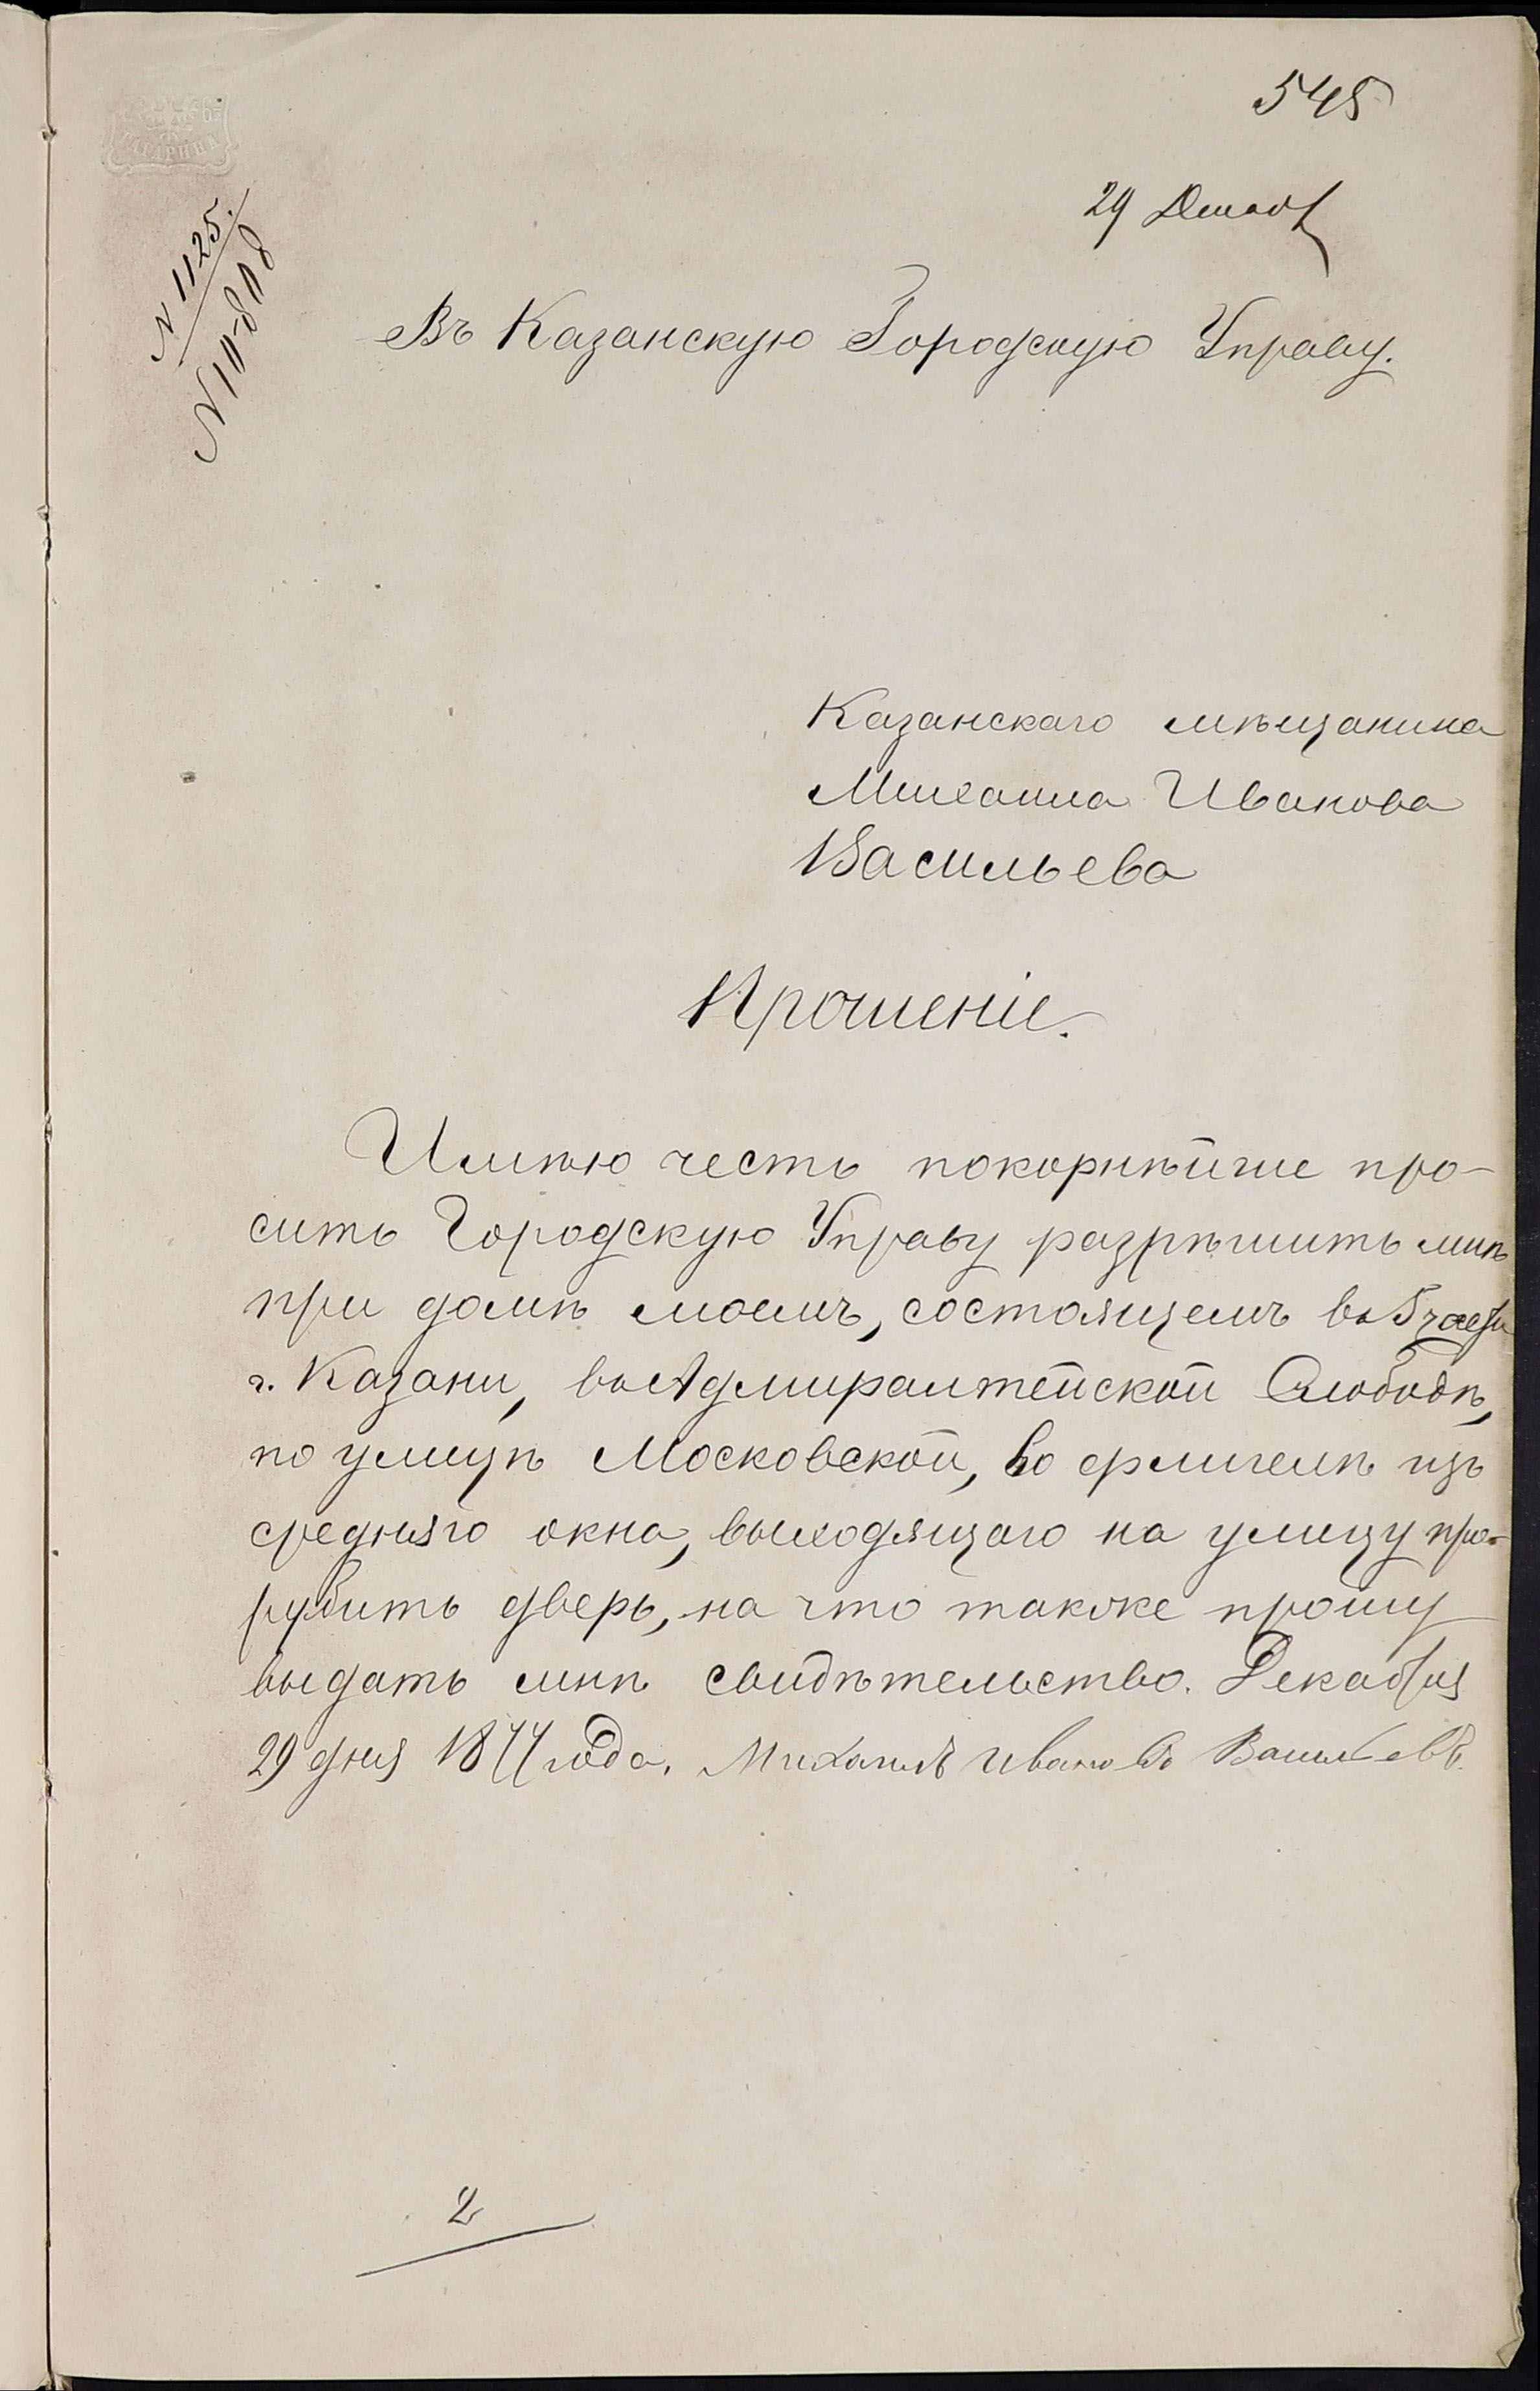 545
29 Декаб
N 1125.
N 10808
Въ Казанскую Городскую Управу.
Казанскаго мѣщанина
Михаила Иванова
Васильева
Прошеніе.
Имѣю честь покорнѣйше про-
сить Городскую Управу разрѣшить мнѣ
при домѣ моемъ, состоящемъ въ 5 части
г. Казани, въ Адмиралтейской Слободѣ,
по улицѣ Московской, во флигелѣ изъ
средняго окна, выходящаго на улицу про-
рубить дверь, на что также прошу
выдать мнѣ свидѣтельство. Декабря
29 дня 1877 года. Михаилъ Ивановъ Васильевъ.
2